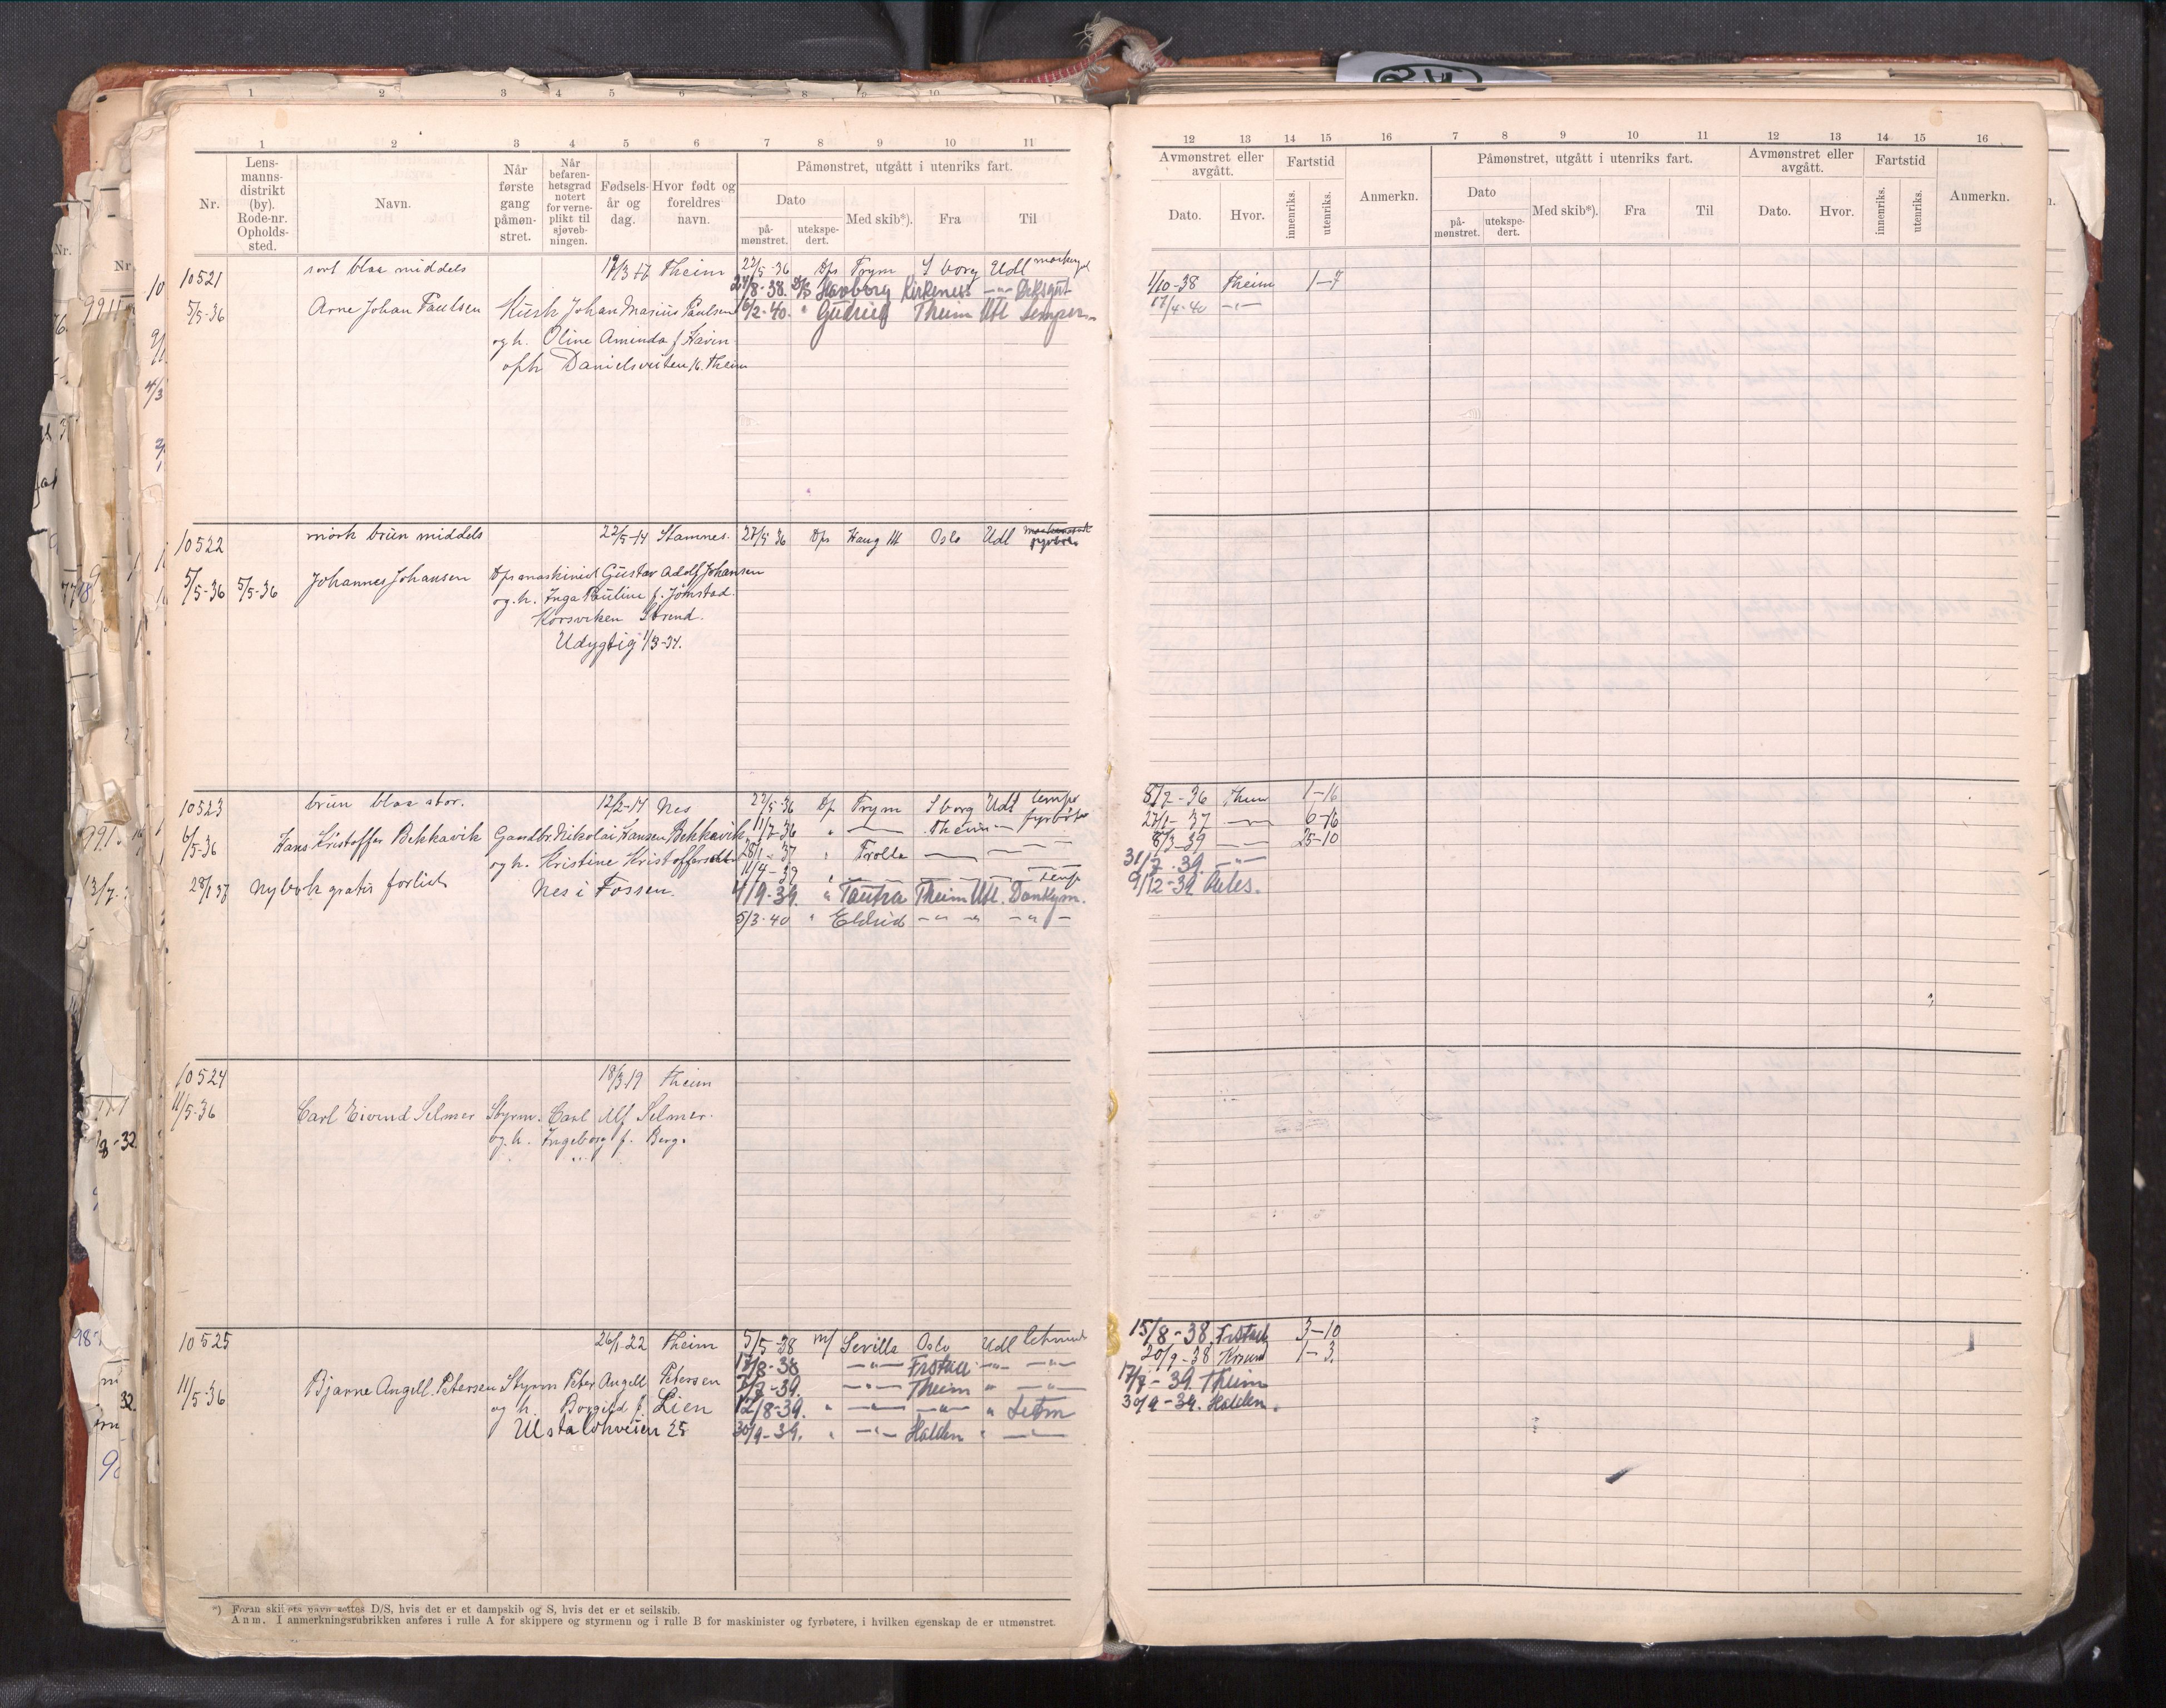 1 2 3 4 5 6 7 8 9 10 11
Nr.
Lensmannsdistrikt (by). Rode-nr. Opholdssted.
Navn.
Når første gang påmønstret.
Når befarenhetsgrad notert for verneplikt til sjøvebningen.
Fødselsår og dag.
Hvor født og foreldres navn.
Påmønstret, utgått i utenriks fart.
Dato
påmønstret.
utekspedert.
Med skib*).
Fra
Til
10521 sort blaa middels 17/3 17 Theim 22/5-36 D/s Trym Sborg Udl
24/8-38. D/S Havborg Kirkenes -"-
5/5-36 Arne Johan Paulsen Kusk Johan Marius Paulsen 16/2-40. " Gudrid Theim Utl
og h. Oline Aminda f Havin
oph Danielsveiten 16. Theim
10522 mörk brun middels 22/5-14 Stamnes. 27/5 36 D/s Haug III Oslo Udl fyrböter
5/5-36 5/5-36 Johannes Johansen D/s maskinist Gustav Adolf Johansen
og. h. Inga Pauline f. Jomstad.
Korsviken Strind.
Udygtig 1/3-34.
10523 brun blaa stor. 12/2-17 Nes 22/5-36 D/s Trym Sborg Udl lemp
6/5-36 Hans Kristoffer Bekkavik Gaardbr. Nikolai Hansen Bekkavik 11/7-36 " — Theim — fyrböter
og h. Kristine Kristoffersdtr 28/1-37 " Trolla — — —
11/4-39 " — — — Lemp
28/1 37 Ny bok gratis forlist Nes i Fossen. 4/9-39. " Tautra Theim Utl. Donkym.
5/3-40 " Eldrid -"- -"- -"-
10524 18/3.19 Theim
11/5-36 Carl Eivind Selmer Styrm. Carl Ulf Selmer.
og. h. Ingeborg f. Berg.
10525 26/1-22 Theim 5/5-38 M/ Sevilla Oslo Udl
17/8-38 -"- Frstad -"- -"-
11/5-36 Bjarne Angell Petersen Styrm Peter Angell Petersen 2/7-39. -"- Theim " -"-
og h. Borgild f. Lien 12/8-39. " -"- -"- " Letm
Ulstalökveien 25 30/9-39. " -"- Halden " -"-
*) Foran skibets navn settes D/S, hvis det er et dampskib og S, hvis det er et seilskib.
Anm. I anmerkningsrubrikken anføres i rulle A for skippere og styrmenn og i rulle B for maskinister og fyrbøtere, i hvilken egenskap de er utmønstret.
12 13 14 15 16 7 8 9 10 11 12 13 14 15 16
Avmønstret eller avgått.
Dato.
Hvor.
Fartstid
innenriks.
utenriks.
Anmerkn.
Påmønstret, utgått i utenriks fart.
Dato
påmønstret.
utekspedert.
Med skib*).
Fra
Til
Avmønstret eller avgått.
Dato.
Hvor.
Fartstid
innenriks.
utenriks.
Anmerkn.
1/10-38 Theim 1-7
17/4-40 -"-
8/7-36 Theim 1-16
27/1-37 — 6-16
8/3-39 — 25-10
31/7.39. -"-
9/12-39
15/8-38. Frstad 3-10
20/9-38 Krsund 1-3.
17/7-39. Theim
30/9-39. Halden.